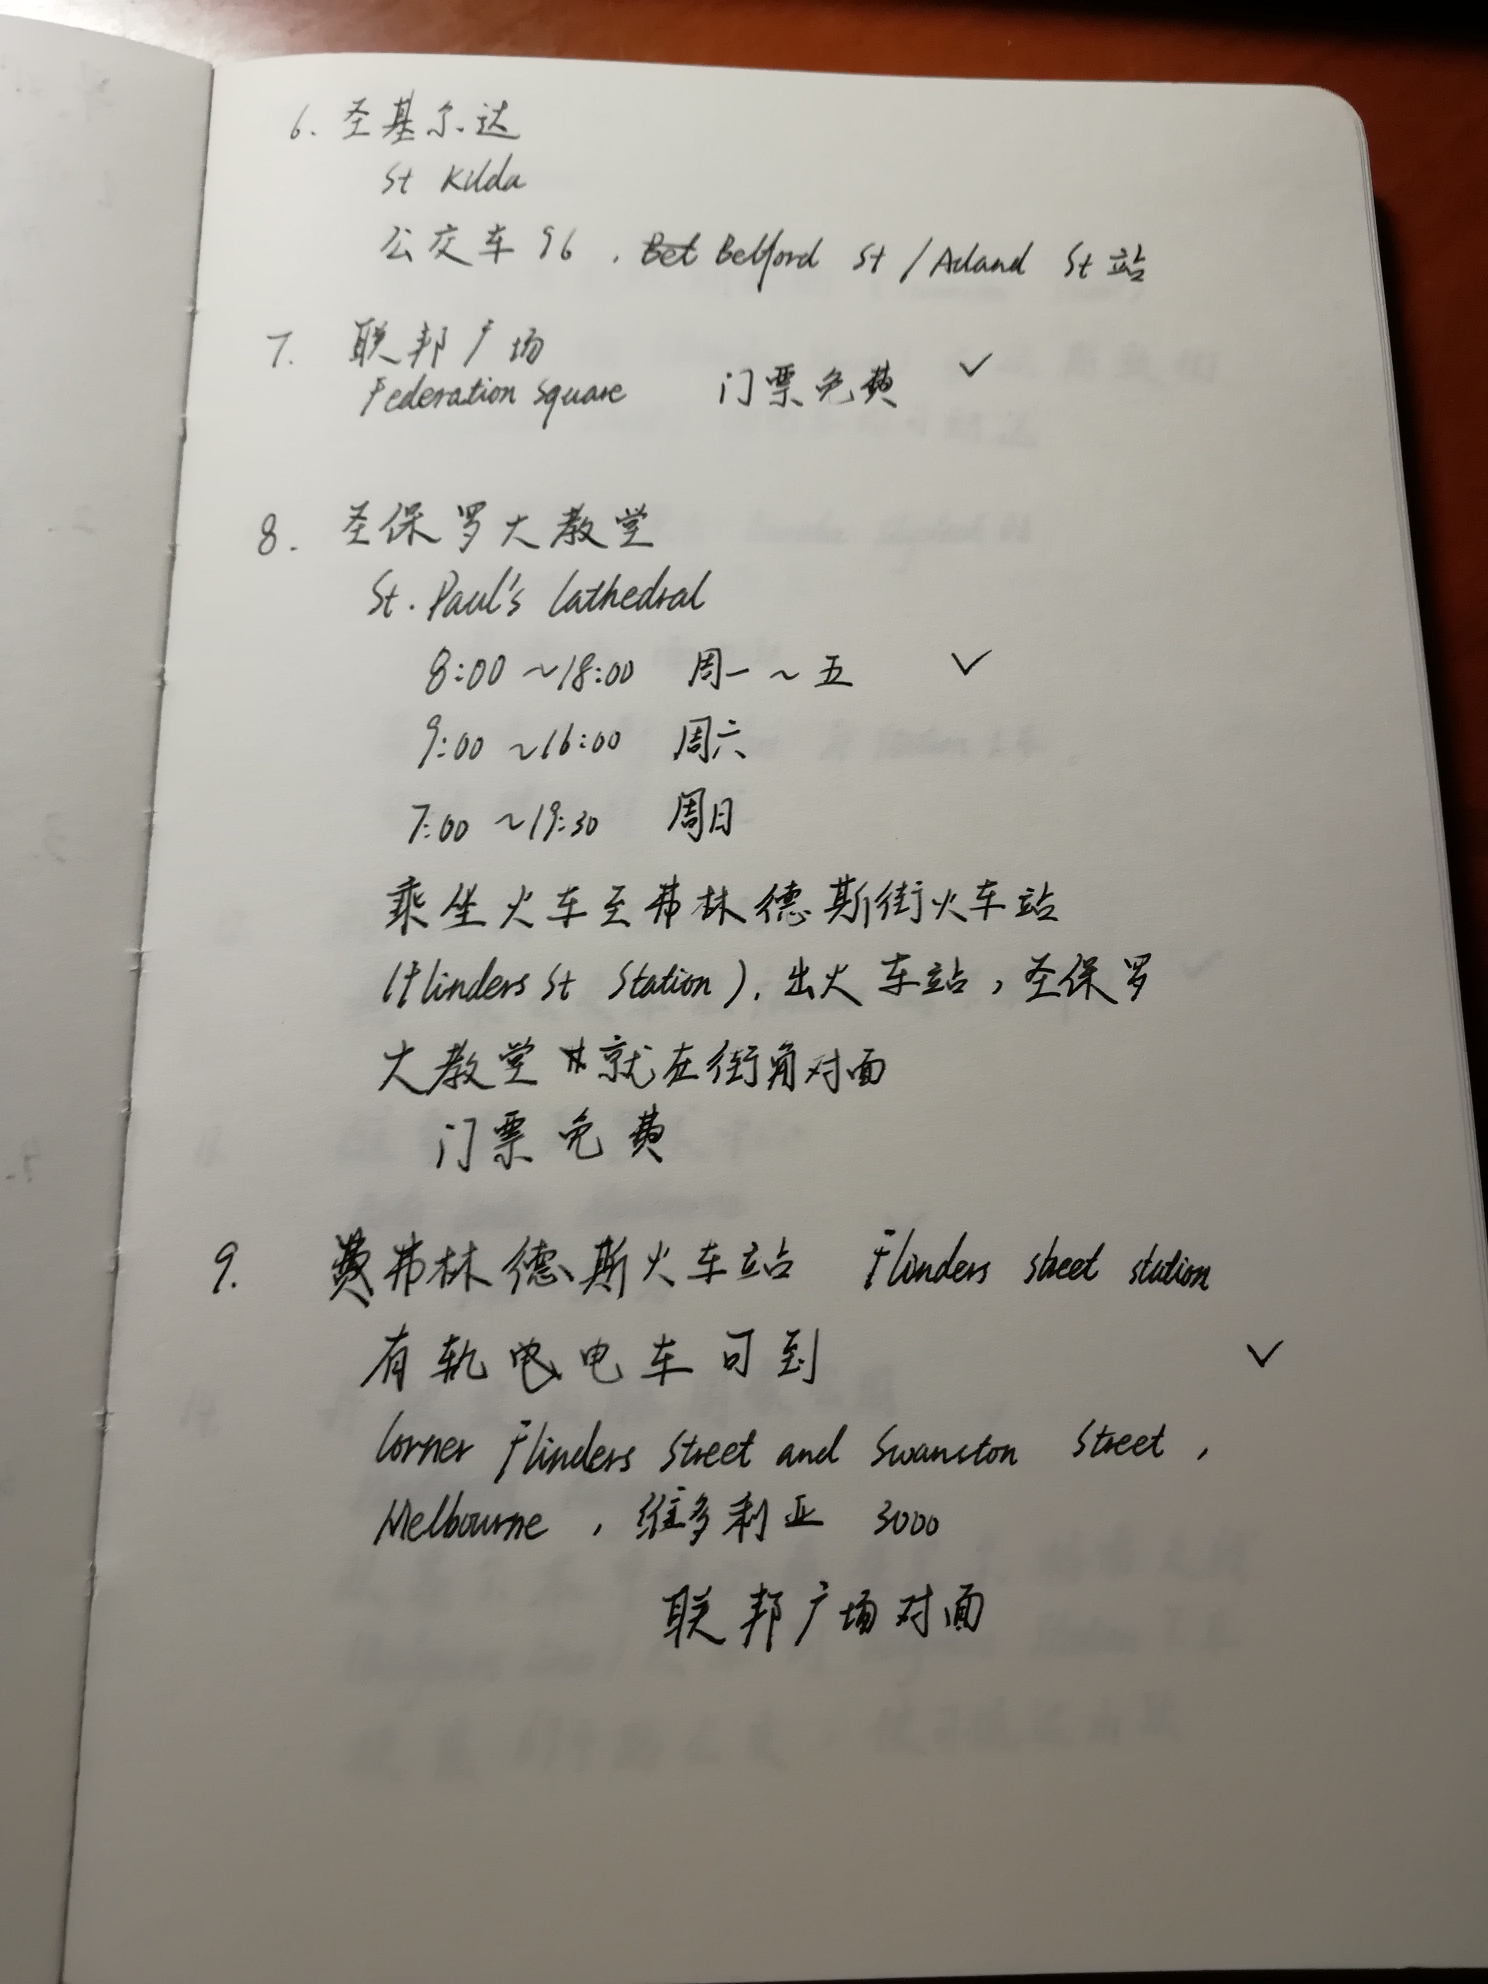 6. 圣基尔达
St Kilda
公交车96，Bet Belford St / Acland St 站
7. 联邦广场
Federation Square 门票免费 ✓
8. 圣保罗大教堂
St. Paul's Cathedral
8:00 ～18:00 周一～五 ✓
9:00 ～16:00 周六
7:00 ～19:30 周日
乘坐火车至弗林德斯街火车站
(Flinders St Station)，出火车站，圣保罗
大教堂就在街角对面
门票免费
9. 费弗林德斯火车站 Flinders street station
有轨电电车可到 ✓
Corner Flinders Street and Swanston Street,
Melbourne，维多利亚 3000
联邦广场对面